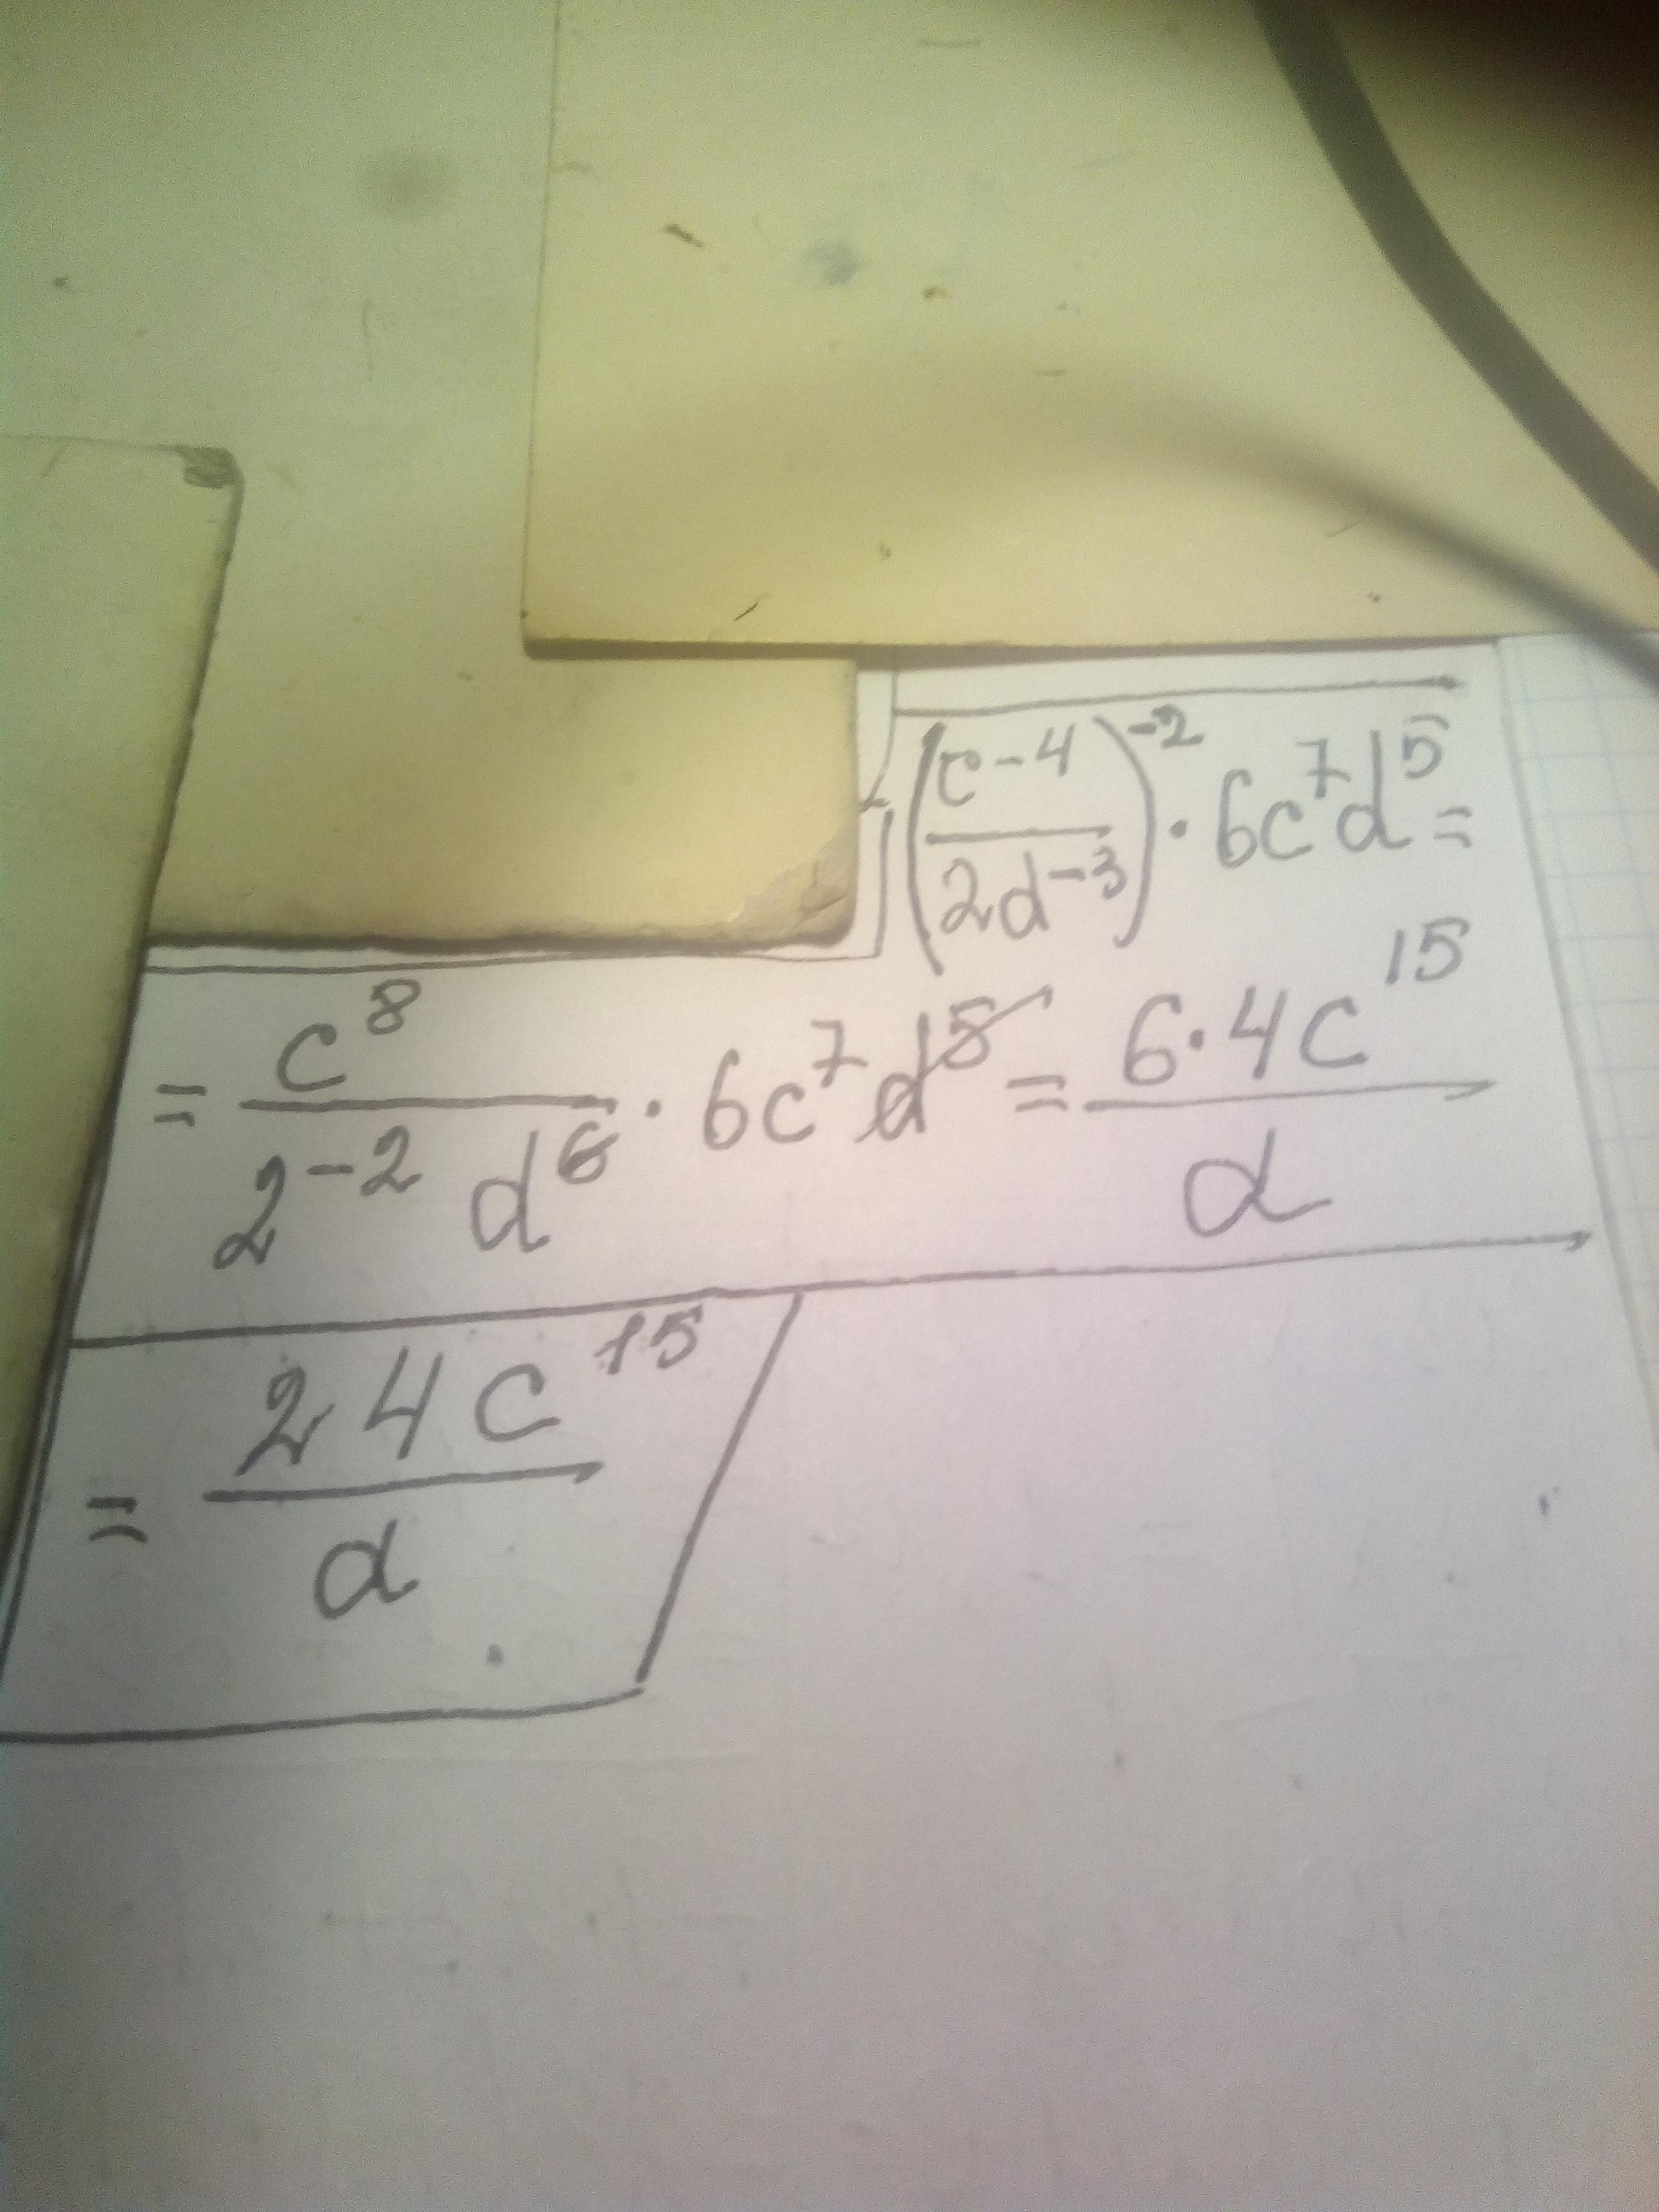 (c^-4 / 2d^-3)^-2 · 6c^7d^5 =
= c^8 / 2^-2 d^6 · 6c^7d^5 = 6·4c^15 / d
= 24c^15 / d